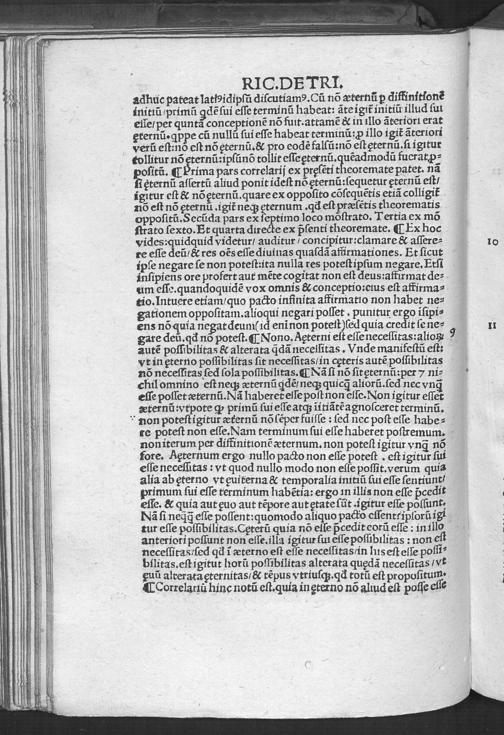 RIC.DE TRI.
adhuc pateat latiꝰ idipsũ discutiamꝰ. Cũ nõ æternũ ꝑ diffinitionẽ
initiũ/ primũ q̃dẽ sui esse terminũ habeat: ãte igit̃ initiũ illud sui
esse/ per quntã conceptionẽ nõ fuit. attamẽ & in illo ãteriori erat
ęternũ. qppe cũ nullũ sui esse habeat terminũ: ꝓ illo igit̃ ãteriori
verũ est: nõ est nõ ęternũ. & pro codẽ falsũ: nõ est ęternũ. si igitur
tollitur nõ ęternũ: ipsũ nõ tollit esse ęternũ. quẽadmodũ fuerat ꝓ-
positũ. ¶ Prima pars correlarij ex pręsẽti theoremate patet. nã
si ęternũ assertũ aliud ponit id est nõ ęternũ: sequetur ęternũ est/
igitur est & nõ ęternũ. quare ex opposito cõsequẽtis etiã colligit̃
nõ est nõ ęternũ. igit̃ neqꝫ ęternum. qd est præsẽtis theorematis
oppositũ. Secũda pars ex septimo loco mõstrato. Tertia ex mõ
strato sexto. Et quarta directe ex p̃senti theoremate. ¶ Ex hoc
vides: quidquid videtur/ auditur/ concipitur: clamare & assere-
re esse deũ/ & res oẽs esse diuinas quasdã affirmationes. Et sicut
ipse negare se non potest: ita nulla res potest ipsum negare. Etsi
insipiens ore profert aut mẽte cogitat non est deus: affirmat de-
um esse. quandoquidẽ vox omnis & conceptio: eius est affirma-
tio. Intuere etiam/ quo pacto infinita affirmatio non habet ne-
gationem oppositam. alioqui negari posset. punitur ergo isipi-
ens nõ quia negat deum (id eni non potest) sed quia credit se ne-
gare deũ. qd nõ potest. ¶ Nono. Aęterni est esse necessitas: alioꝝ 9
autẽ possibilitas & alterata q̃dã necessitas. Vnde manifestũ est:
vt in ęterno possibilitas sit necessitas/ in cęteris autẽ possibilitas
nõ necessitas sed sola possibilitas. ¶ Nã si nõ sit ęternũ: per 7 ni-
chil omnino est neqꝫ æternũ q̃de/ neqꝫ quicq̃ aliorũ. sed nec vnq̃
esse posset æternũ. Nã haberet esse post non esse. Non igitur esset
æternũ: vtpote qꝫ primũ sui esse atqꝫ iitiãtẽ agnosceret terminũ.
non potest igitur æternũ nõ sẽper fuisse: sed nec post esse habe-
re potest non esse. Nam terminum sui esse haberet postremum.
non iterum per diffinitionẽ æternum. non potest igitur vnq̃ nõ
fore. Aęternum ergo nullo pacto non esse potest. est igitur sui
esse necessitas: vt quod nullo modo non esse possit. verum quia
alia ab ęterno vt ęuiterna & temporalia initiũ sui esse sentiunt/
primum sui esse terminum habẽtia: ergo in illis non esse p̃cedit
esse. & quia aut ęuo aut tẽpore aut ętate sũt. igitur esse possunt.
Nã si neqꝫ esse possent: quomodo aliquo pacto essent/ ipsorũ igi
tur esse possibilitas. Cęterũ quia nõ esse p̃cedit eorũ esse: in illo
anteriori possunt non esse. illa igitur sui esse possibilitas: non est
necessitas/ sed qd ĩ æterno est esse necessitas/ in his est esse possi-
bilitas. est igitur horũ possibilitas alterata quędã necessitas/ vt
ęuũ alterata ęternitas/ & tẽpus vtriusqꝫ. qd totũ est propositum.
¶ Correlariũ hinc notũ est. quia in ęterno nõ aliud est posse esse
10
11